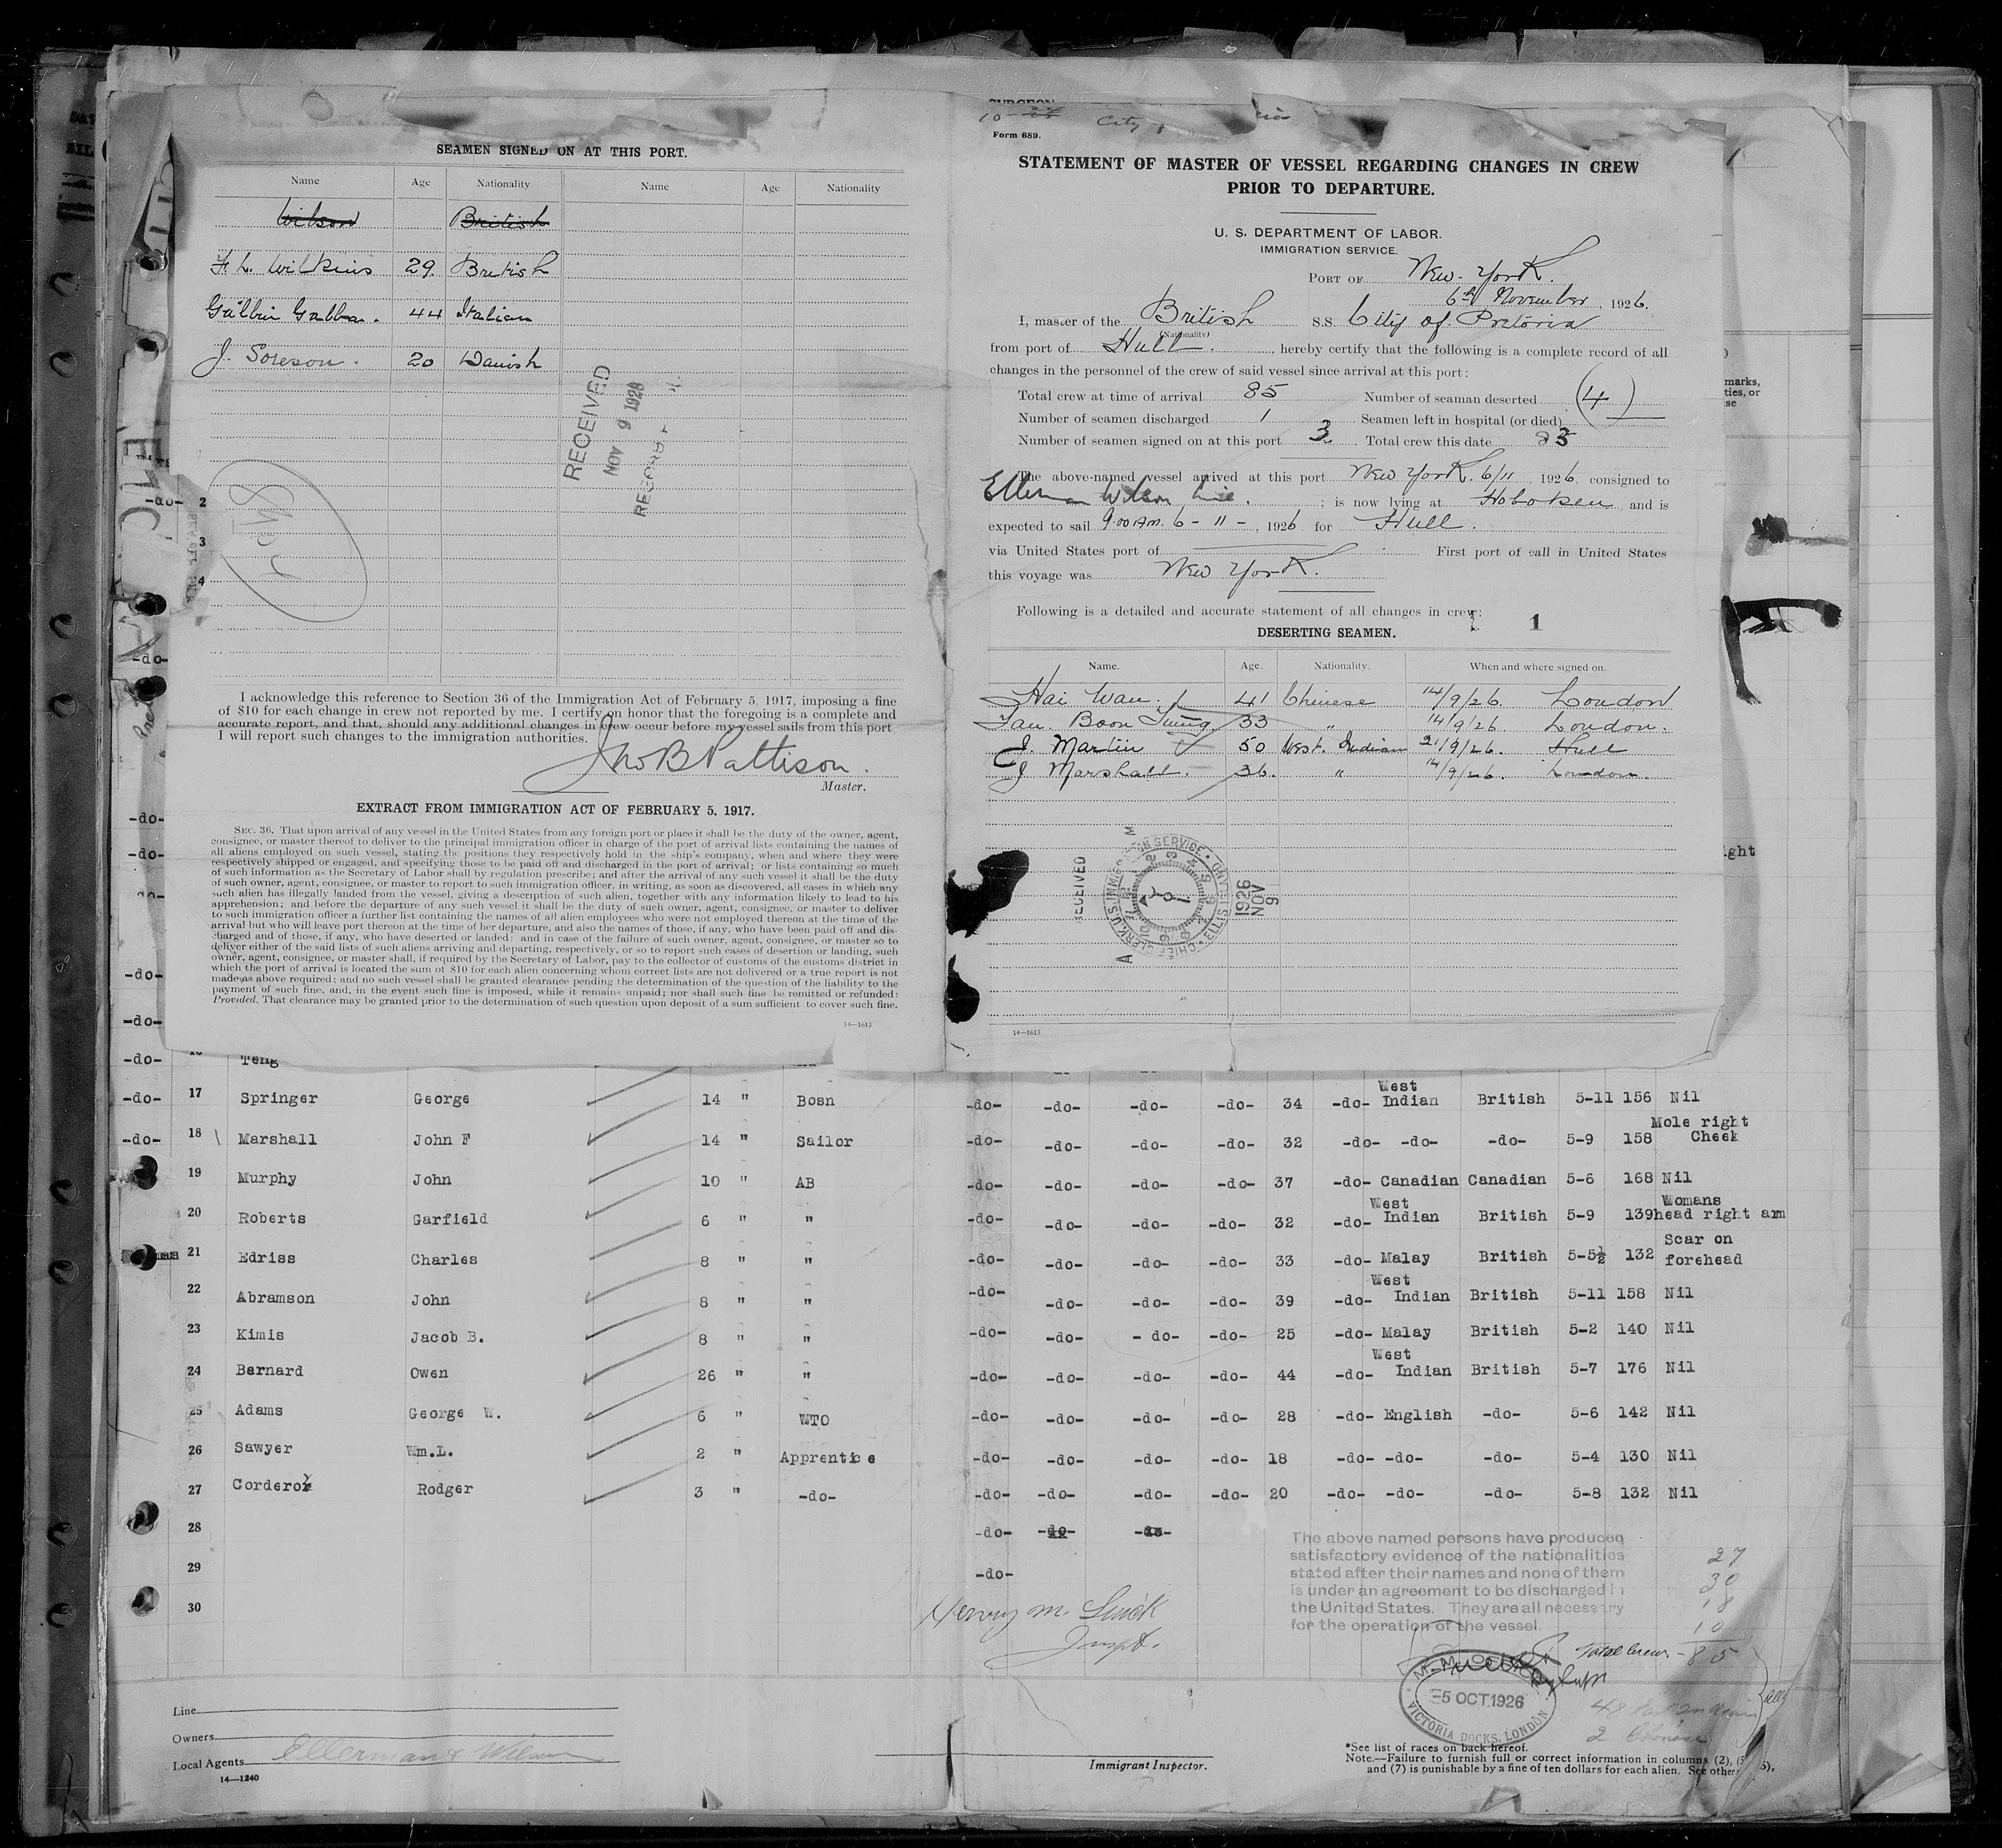 SEAMEN SIGNED ON AT THIS PORT.
Name Age Nationality Name Age Nationality
Wilson British
F. L. Wilkins 29 British
44 Italian
J. Soreson. 20 Danish
RECEIVED
NOV 9 1926
I acknowledge this reference to Section 36 of the Immigration Act of February 5, 1917, imposing a fine
of $10 for each change in crew not reported by me. I certify on honor that the foregoing is a complete and
accurate report, and that, should any additional changes in crew occur before my vessel sails from this port
I will report such changes to the immigration authorities.
Jno B Pattison.
Master.
EXTRACT FROM IMMIGRATION ACT OF FEBRUARY 5, 1917.
SEC. 36. That upon arrival of any vessel in the United States from any foreign port or place it shall be the duty of the owner, agent,
consignee, or master thereof to deliver to the principal immigration officer in charge of the port of arrival lists containing the names of
all aliens employed on such vessel, stating the positions they respectively hold in the ship's company, when and where they were
respectively shipped or engaged, and specifying those to be paid off and discharged in the port of arrival; or lists containing so much
of such information as the Secretary of Labor shall by regulation prescribe; and after the arrival of any such vessel it shall be the duty
of such owner, agent, consignee, or master to report to such immigration officer, in writing, as soon as discovered, all cases in which any
such alien has illegally landed from the vessel, giving a description of such alien, together with any information likely to lead to his
apprehension; and before the departure of any such vessel it shall be the duty of such owner, agent, consignee, or master to deliver
to such immigration officer a further list containing the names of all alien employees who were not employed thereon at the time of the
arrival but who will leave port thereon at the time of her departure, and also the names of those, if any, who have been paid off and dis-
charged and of those, if any, who have deserted or landed; and in case of the failure of such owner, agent, consignee, or master so to
deliver either of the said lists of such aliens arriving and departing, respectively, or so to report such cases of desertion or landing, such
owner, agent, consignee, or master shall, if required by the Secretary of Labor, pay to the collector of customs of the customs district in
which the port of arrival is located the sum of $10 for each alien concerning whom correct lists are not delivered or a true report is not
made as above required; and no such vessel shall be granted clearance pending the determination of the question of the liability to the
payment of such fine, and, in the event such fine is imposed, while it remains unpaid; nor shall such fine be remitted or refunded:
Provided, That clearance may be granted prior to the determination of such question upon deposit of a sum sufficient to cover such fine.
14—1613
SURGEON
City
Form 689.
STATEMENT OF MASTER OF VESSEL REGARDING CHANGES IN CREW
PRIOR TO DEPARTURE.
U. S. DEPARTMENT OF LABOR.
IMMIGRATION SERVICE.
PORT OF New-York.
6th November, 1926.
I, master of the British S.S. City of Pretoria
(Nationality)
from port of Hull., hereby certify that the following is a complete record of all
changes in the personnel of the crew of said vessel since arrival at this port:
Total crew at time of arrival 85 Number of seaman deserted (4)
Number of seamen discharged 1 Seamen left in hospital (or died)
Number of seamen signed on at this port 3 Total crew this date 83
The above-named vessel arrived at this port New York. 6/11, 1926, consigned to
Ellerman Wilson Line.; is now lying at Hoboken, and is
expected to sail 9.00 AM. 6-11-, 1926 for Hull.
via United States port of First port of call in United States
this voyage was New York.
Following is a detailed and accurate statement of all changes in crew:
1
DESERTING SEAMEN.
Name. Age. Nationality. When and where signed on.
Hai Wan. 41 Chinese 14/9/26. London
33 " 14/9/26. London.
J. Martin 50 West. Indian 21/9/26. Hull
J Marshall. 36. " 14/9/26. London.
RECEIVED
CHIEF CLERK, U.S. IMMIGRATION SERVICE • ELLIS ISLAND
1926
NOV
9
14—1613
2
3
4
-do-
-do-
-do-
-do-
-do-
-do-
-do- Teng
-do- 17 Springer George 14 " Bosn -do- -do- -do- -do- 34 -do- West Indian British 5-11 156 Nil
-do- 18 Marshall John F 14 " Sailor -do- -do- -do- -do- 32 -do- -do- -do- 5-9 158 Mole right Cheek
19 Murphy John 10 " AB -do- -do- -do- -do- 37 -do- Canadian Canadian 5-6 168 Nil
20 Roberts Garfield 6 " " -do- -do- -do- -do- 32 -do- West Indian British 5-9 139 Womans head right arm
21 Edriss Charles 8 " " -do- -do- -do- -do- 33 -do- Malay British 5-5½ 132 Scar on forehead
22 Abramson John 8 " " -do- -do- -do- -do- 39 -do- West Indian British 5-11 158 Nil
23 Kimis Jacob B. 8 " " -do- -do- -do- -do- 25 -do- Malay British 5-2 140 Nil
24 Bernard Owen 26 " " -do- -do- -do- -do- 44 -do- West Indian British 5-7 176 Nil
25 Adams George W. 6 " WTO -do- -do- -do- -do- 28 -do- English -do- 5-6 142 Nil
26 Sawyer Wm.L. 2 " Apprentice -do- -do- -do- -do- 18 -do- -do- -do- 5-4 130 Nil
27 Corderoy Rodger 3 " -do- -do- -do- -do- -do- 20 -do- -do- -do- 5-8 132 Nil
28 -do- -do- -do-
29 -do-
30
The above named persons have produced
satisfactory evidence of the nationalities
stated after their names and none of them
is under an agreement to be discharged in
the United States. They are all necessary
for the operation of the vessel.
27
30
18
10
Total Crew - 85
Henry M.
Inspt.
-5 OCT 1926
VICTORIA DOCKS, LONDON
2 Chinese
Line
Owners
Local Agents Ellerman & Wilson
14—1240
Immigrant Inspector.
*See list of races on back hereof.
Note.—Failure to furnish full or correct information in columns (2), (5),
and (7) is punishable by a fine of ten dollars for each alien. See other